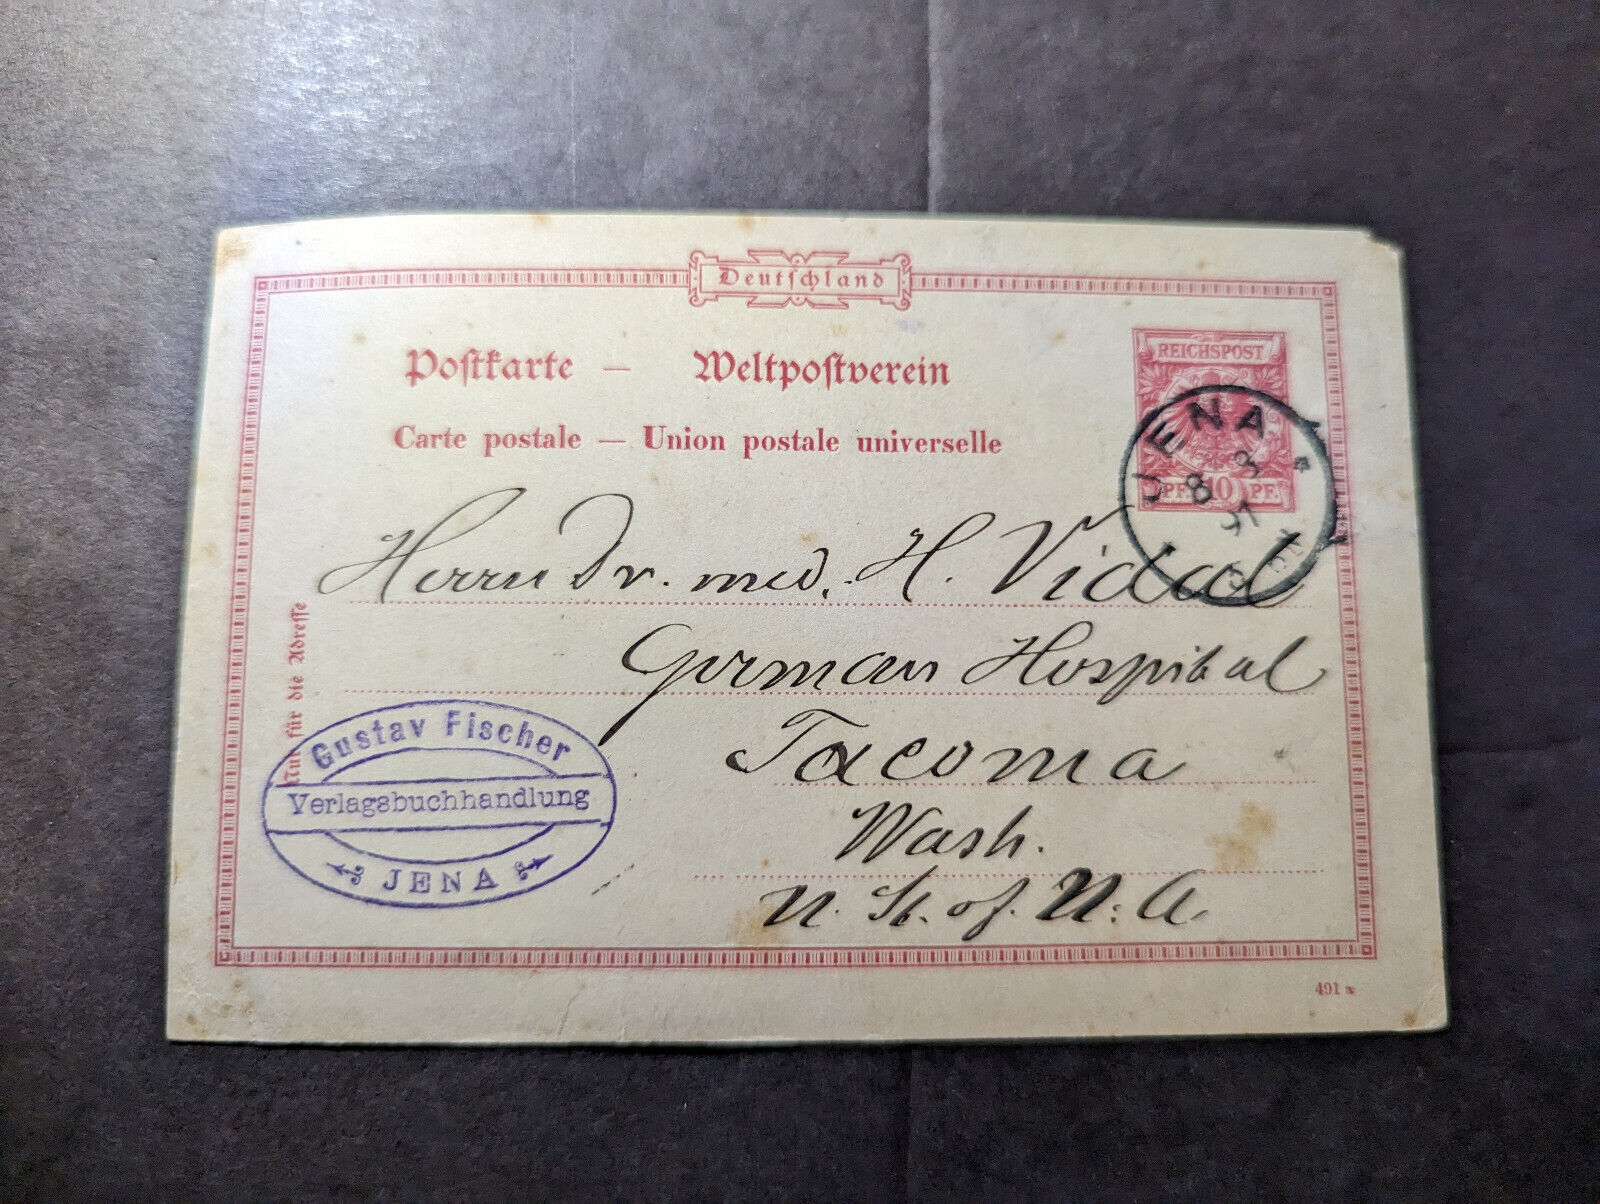 Deutschland
Postkarte — Weltpostverein
Carte postale — Union postale universelle
REICHSPOST
PF. 10 PF.
JENA
8 3
97
Herrn Dr. med. H. Vidal
German Hospital
Tacoma
Wash.
U. St. of N. A.
Nur für die Adresse
Gustav Fischer
Verlagsbuchhandlung
JENA
491 a